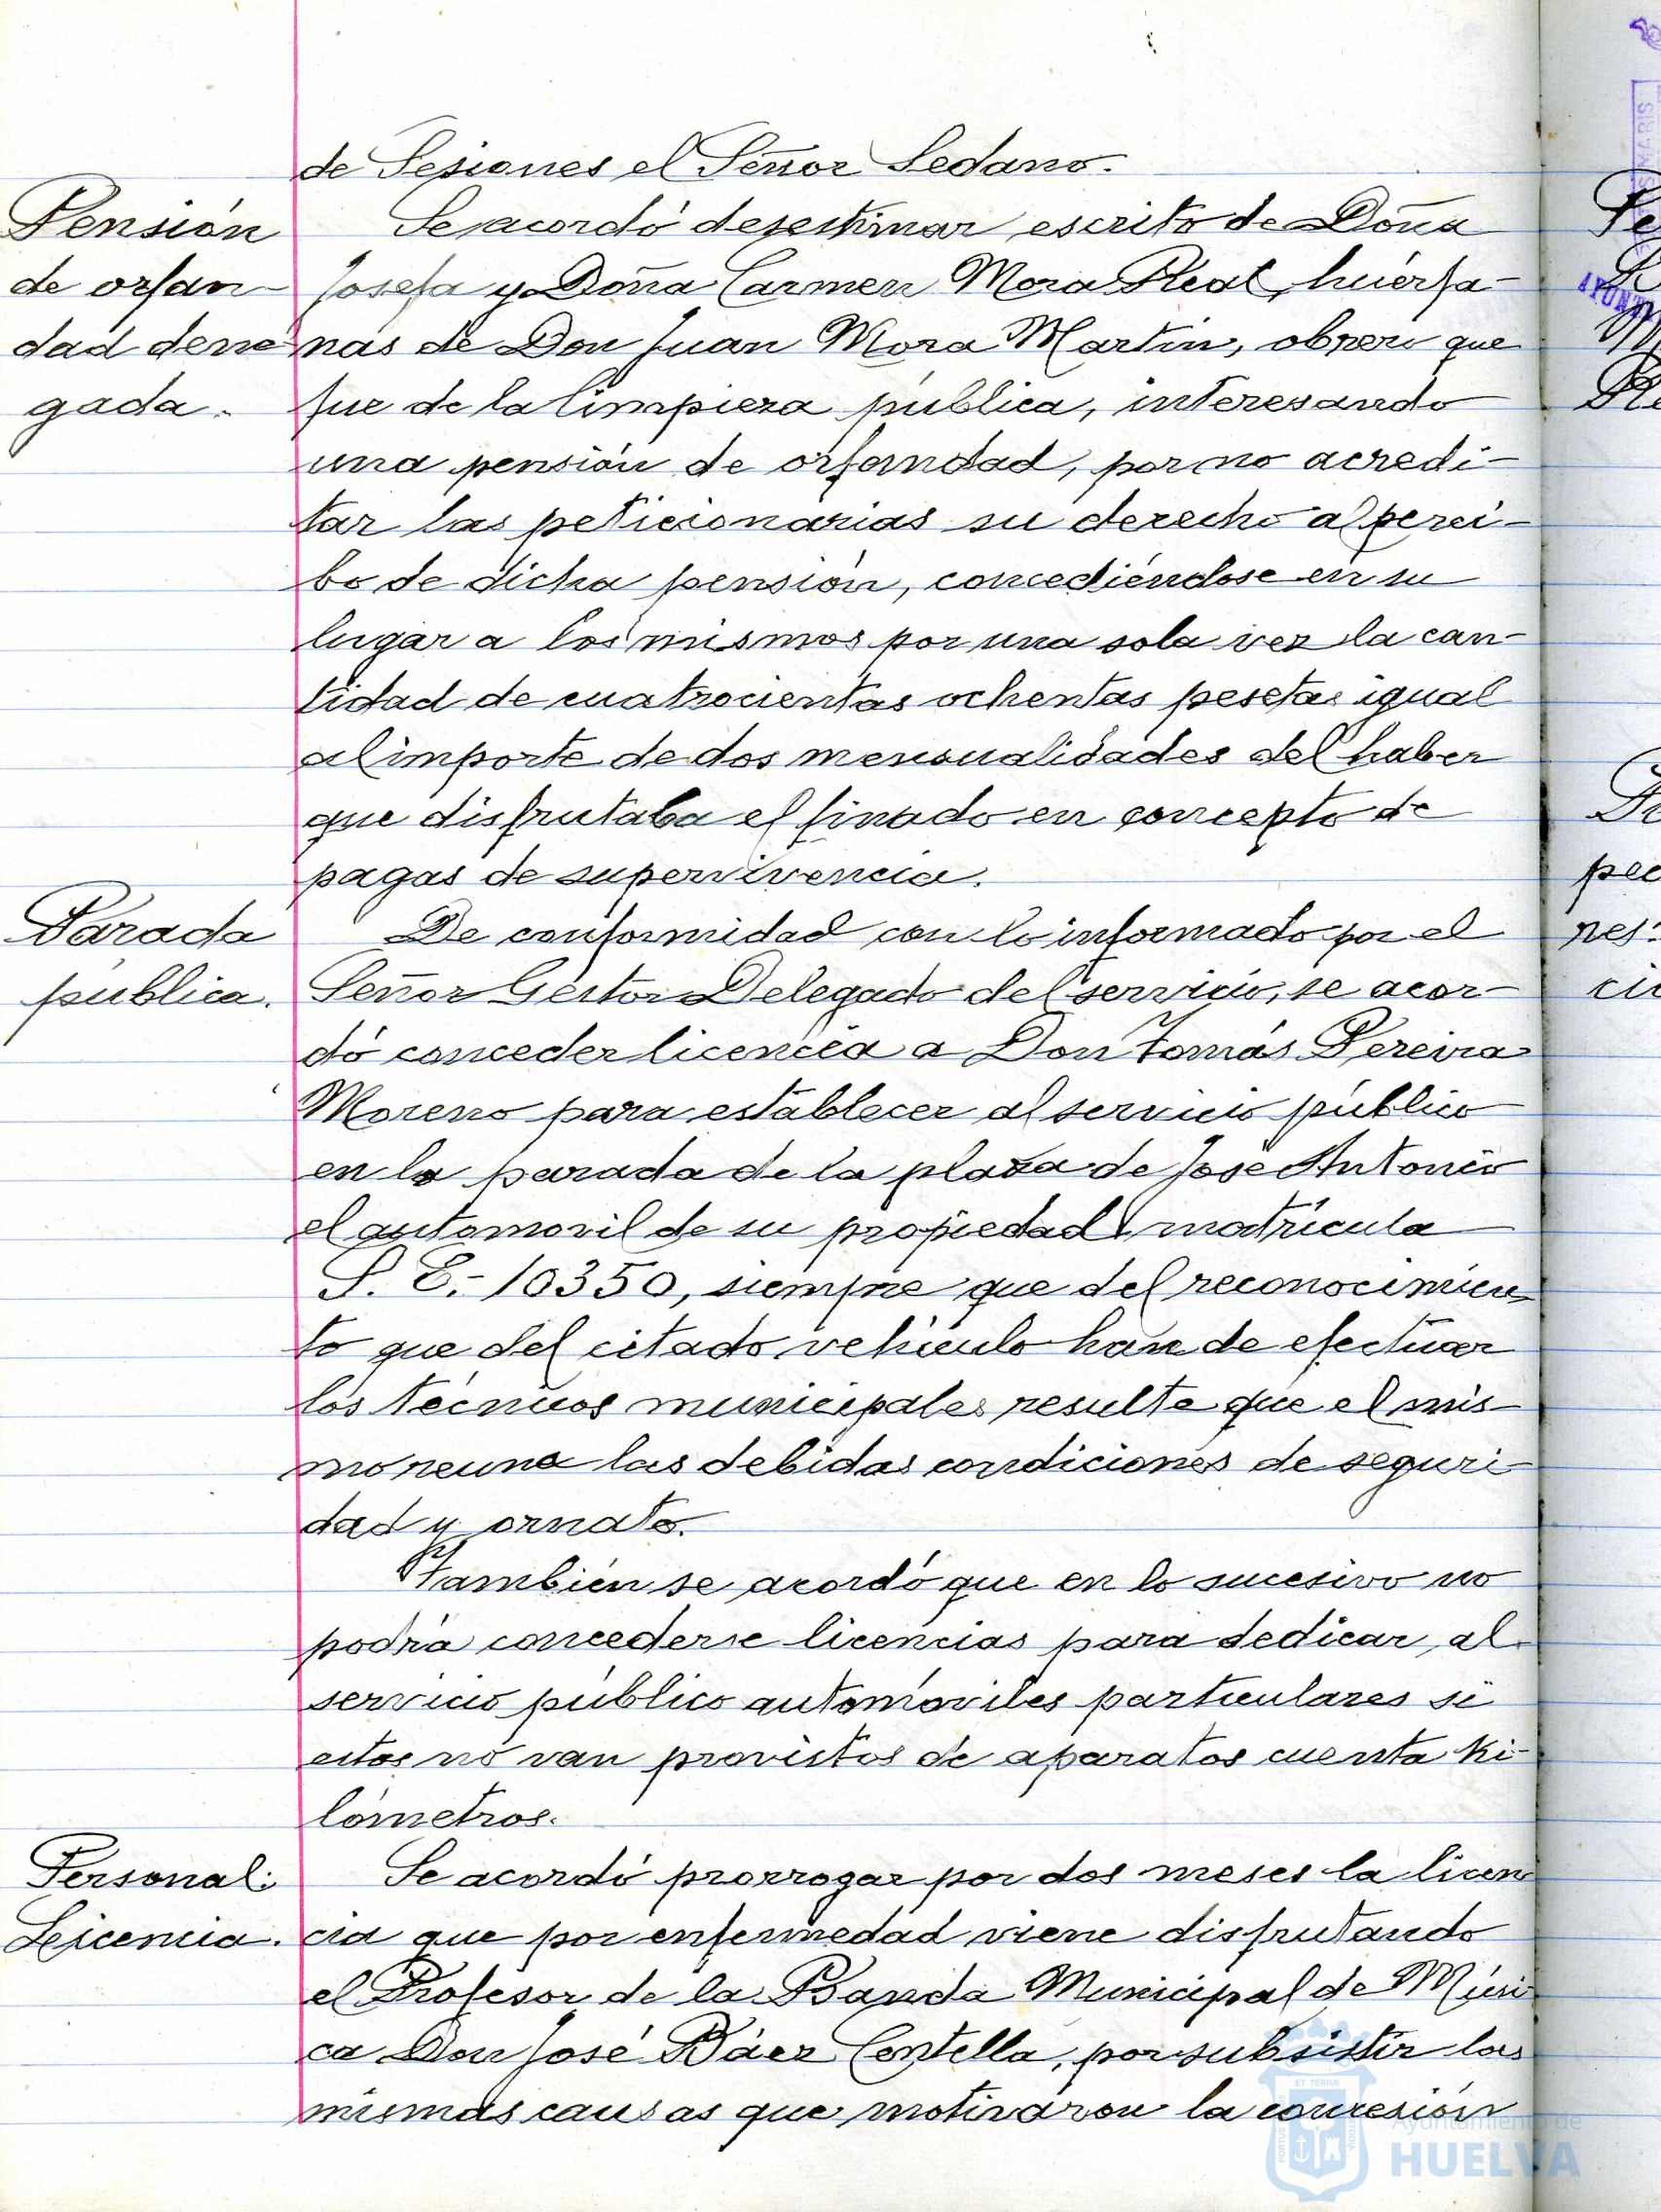 de Sesiones el Señor Sedano.
Pensión
de orfan-
dad dene
gada.
Se acordó desestimar escrito de Doña
Josefa y Doña Carmen Mora Real, huérfa-
nas de Don Juan Mora Martín, obrero que
fue de la limpieza pública, interesando
una pensión de orfandad, por no acredi-
tar las peticionarias su derecho al perci-
bo de dicha pensión, concediéndose en su
lugar a los mismos por una sola vez la can-
tidad de cuatrocientas ochentas pesetas igual
al importe de dos mensualidades del haber
que disfrutaba el finado en concepto de
pagas de supervivencia.
Parada
pública.
De conformidad con lo informado por el
Señor Gestor Delegado del servicio, se acor-
dó conceder licencia a Don Tomás Pereira
Moreno para establecer al servicio público
en la parada de la plaza de José Antonio
el automovil de su propiedad matrícula
S. E.- 10350, siempre que del reconocimien-
to que del citado vehículo han de efectuar
los técnicos municipales resulte que el mis-
mo reuna las debidas condiciones de seguri-
dad y ornato.
También se acordó que en lo sucesivo no
podrá concederse licencias para dedicar al
servicio público automóviles particulares si
estos no van provistos de aparatos cuenta ki-
lómetros.
Personal:
Licencia.
Se acordó prorrogar por dos meses la licen
cia que por enfermedad viene disfrutando
el Profesor de la Banda Municipal de Músi
ca Don José Báez Centella, por subsistir las
mismas causas que motivaron la concesión
Ayuntamiento de
HUELVA